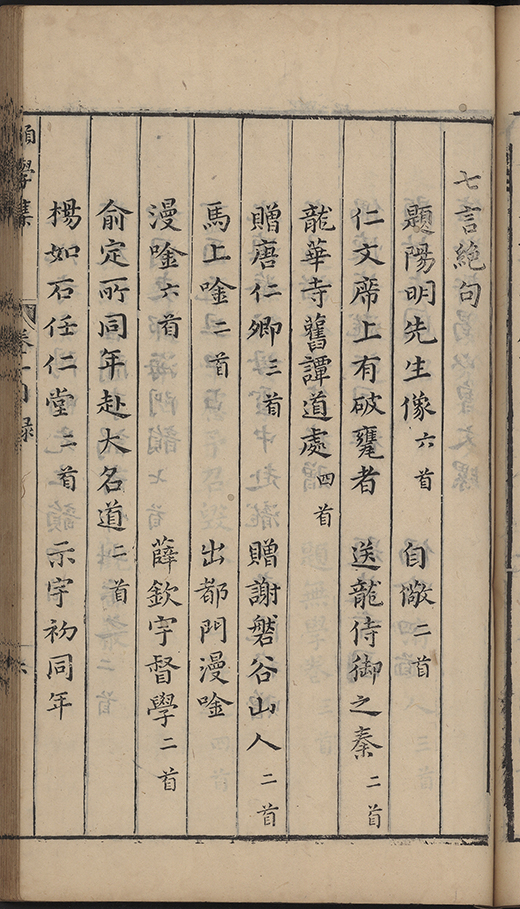 七言絕句
題陽明先生像六首　自儆二首
仁文席上有破甕者　送龍侍御之秦二首
龍華寺舊譚道處四首
贈唐仁卿三首　贈謝磐谷山人二首
馬上唫二首　出都門漫唫
漫唫六首　薛欽宇督學二首
俞定所同年赴大名道二首
楊如石任仁堂二首　示宇初同年
願學集　卷一目錄